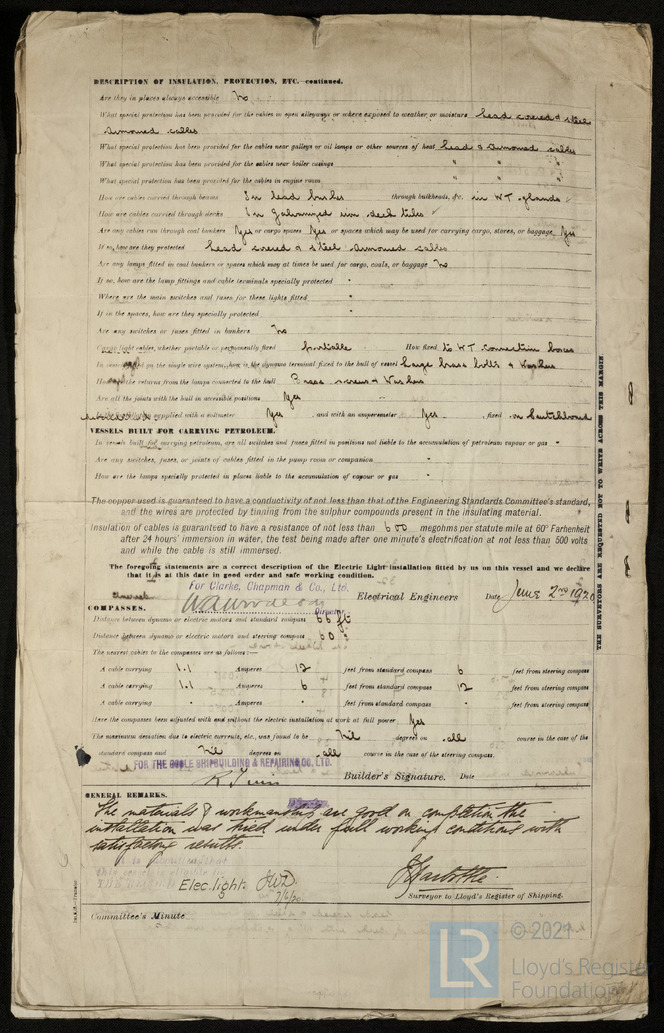 DESCRIPTION OF INSULATION, PROTECTION, ETC.—continued.
Are they in places always accessible No
What special protection has been provided for the cables in open alleyways or where exposed to weather or moisture Lead covered & steel
armoured cables
What special protection has been provided for the cables near galleys or oil lamps or other sources of heat Lead & armoured cables
What special protection has been provided for the cables near boiler casings " " "
What special protection has been provided for the cables in engine room " " "
How are cables carried through beams In lead bushes through bulkheads, &c. in W T glands
How are cables carried through decks In Galvanized iron deck tubes
Are any cables run through coal bunkers Yes or cargo spaces Yes or spaces which may be used for carrying cargo, stores, or baggage Yes
If so, how are they protected Lead covered & steel armoured cables
Are any lamps fitted in coal bunkers or spaces which may at times be used for cargo, coals, or baggage No
If so, how are the lamp fittings and cable terminals specially protected "
Where are the main switches and fuses for these lights fitted "
If in the spaces, how are they specially protected "
Are any switches or fuses fitted in bunkers No
Cargo light cables, whether portable or permanently fixed portable How fixed to W T connection boxes
In cases on the single wire system, how is the dynamo terminal fixed to the hull of vessel Large brass bolts & Washers
How are the returns from the lamps connected to the hull Brass screws & Washers
Are all the joints with the hull in accessible positions Yes
supplied with a voltmeter Yes , and with an amperemeter Yes , fixed on Switchboard
VESSELS BUILT FOR CARRYING PETROLEUM.
In vessels built for carrying petroleum, are all switches and fuses fitted in positions not liable to the accumulation of petroleum vapour or gas "
Are any switches, fuses, or joints of cables fitted in the pump room or companion "
How are the lamps specially protected in places liable to the accumulation of vapour or gas "
The copper used is guaranteed to have a conductivity of not less than that of the Engineering Standards Committee's standard,
and the wires are protected by tinning from the sulphur compounds present in the insulating material.
Insulation of cables is guaranteed to have a resistance of not less than 600 megohms per statute mile at 60° Farhenheit
after 24 hours' immersion in water, the test being made after one minute's electrification at not less than 500 volts
and while the cable is still immersed.
The foregoing statements are a correct description of the Electric Light installation fitted by us on this vessel and we declare
that it is at this date in good order and safe working condition.
For Clarke, Chapman & Co., Ltd.
Electrical Engineers Date June 2nd 1920
Director
COMPASSES.
Distance between dynamo or electric motors and standard compass 66 ft
Distance between dynamo or electric motors and steering compass 60 "
The nearest cables to the compasses are as follows:—
A cable carrying 1.1 Amperes 12 feet from standard compass 6 feet from steering compass
A cable carrying 1.1 Amperes 6 feet from standard compass 12 feet from steering compass
A cable carrying " Amperes " feet from standard compass " feet from steering compass
Have the compasses been adjusted with and without the electric installation at work at full power Yes
The maximum deviation due to electric currents, etc., was found to be Nil degrees on all course in the case of the
standard compass and Nil degrees on all course in the case of the steering compass.
FOR THE GOOLE SHIPBUILDING & REPAIRING CO. LTD.
Builder's Signature. Date
GENERAL REMARKS.
The materials & workmanship are good on completion the
installation was tried under full working conditions with
satisfactory results.
Elec. light
7/6/20
Surveyor to Lloyd's Register of Shipping.
Committee's Minute
THE SURVEYORS ARE REQUESTED NOT TO WRITE ACROSS THIS MARGIN
LR
© 2021
Lloyd's Register
Foundation